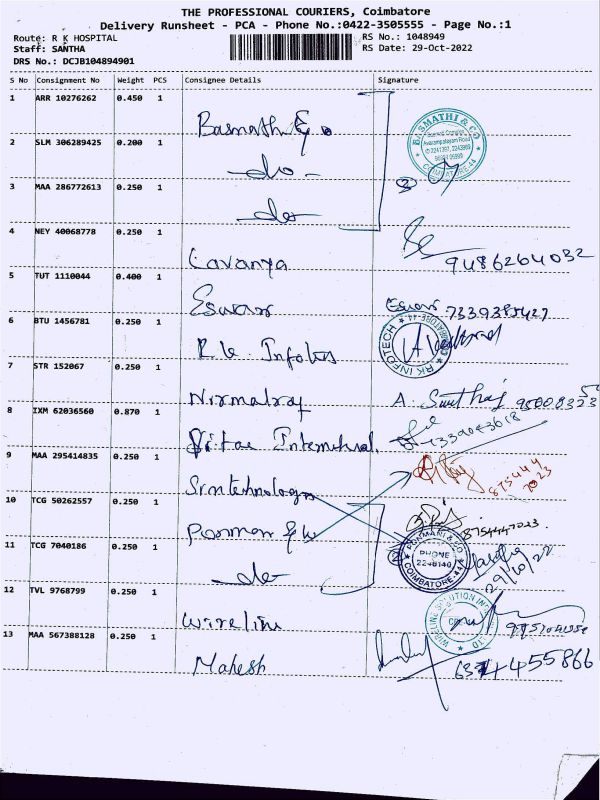 THE PROFESSIONAL COURIERS, Coimbatore
Delivery Runsheet - PCA - Phone No.:0422-3505555 - Page No.:1
Route: R K HOSPITAL
Staff: SANTHA
DRS No.: DCJB104894901
RS No.: 1048949
RS Date: 29-Oct-2022
S No Consignment No Weight PCS Consignee Details Signature
1 ARR 10276262 0.450 1
Basmathi & Co
BASMATHI & CO
COIMBATORE-44
2 SLM 306289425 0.200 1
-do-
3 MAA 286772613 0.250 1
-do-
4 NEY 40068778 0.250 1
Lavanya 9486264032
5 TUT 1110044 0.400 1
Eswar Eswari 7339385427
6 BTU 1456781 0.250 1
R.K. Infotes
RK INFOTECH
COIMBATORE-44
7 STR 152067 0.250 1
Nirmalraj A.
8 IXM 62036560 0.870 1
Vitae International
9 MAA 295414835 0.250 1
Srmtechnologn
875444
7023
10 TCG 50262557 0.250 1
8754447023
PHONE
2240140
COIMBATORE-44
11 TCG 7040186 0.250 1
-do-
29/10/22
12 TVL 9768799 0.250 1
Wireline
WIRELINE SOLUTION
13 MAA 567388128 0.250 1
Mahesh 6374455866